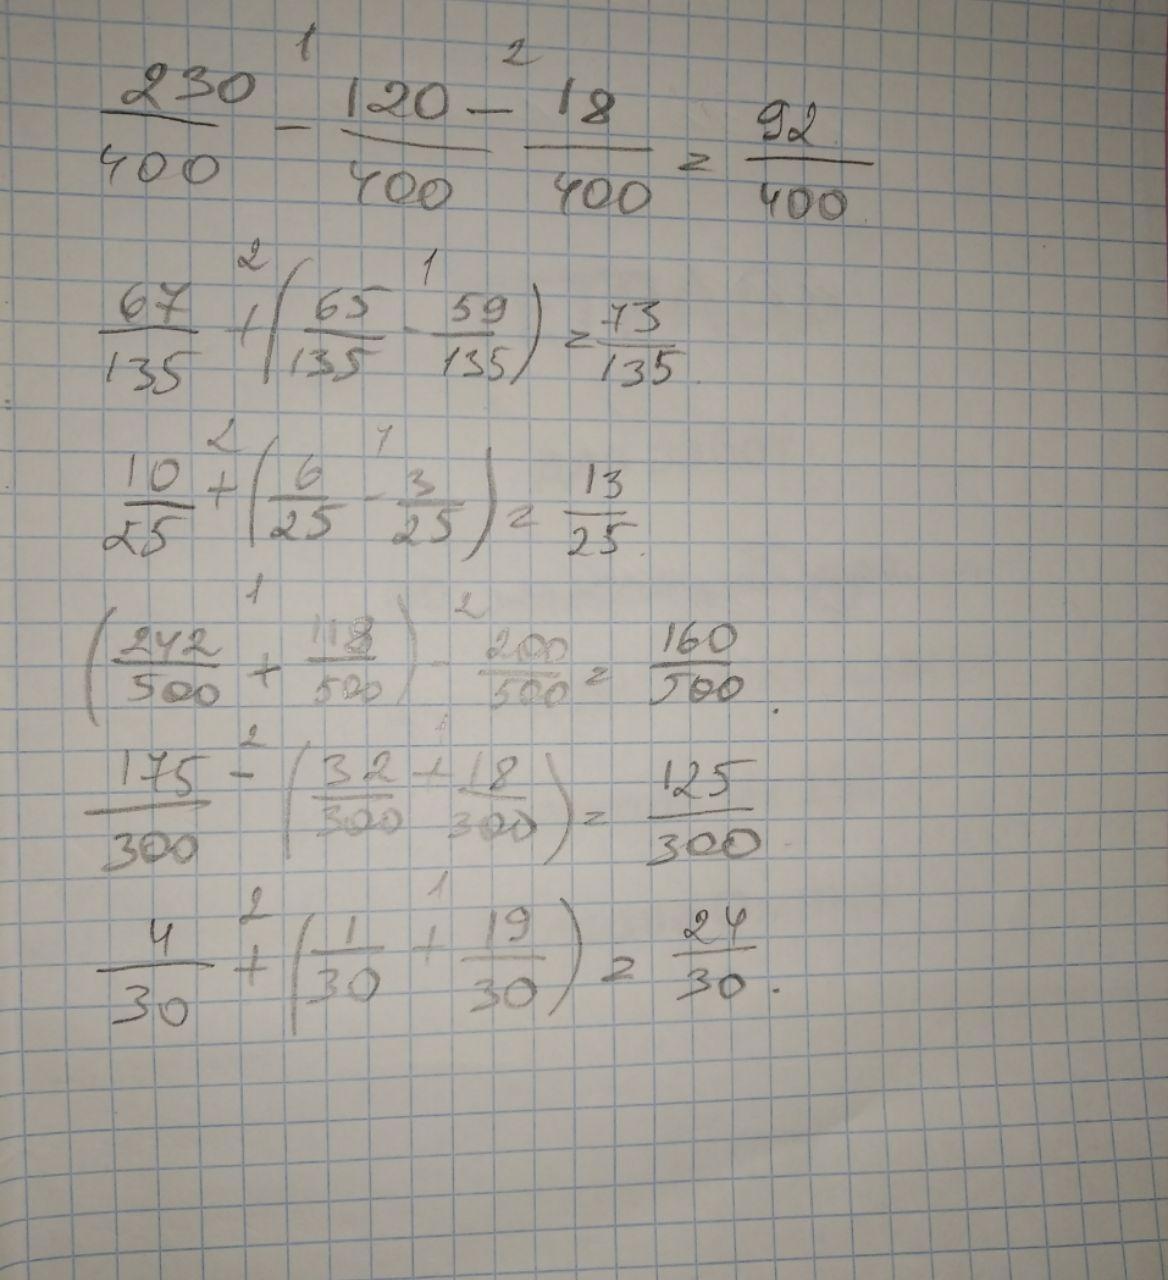 1 2
230/400 - 120/400 - 18/400 = 92/400
2 1
67/135 + (65/135 - 59/135) = 73/135.
2 1
10/25 + (6/25 - 3/25) = 13/25.
1 2
(242/500 + 118/500) - 200/500 = 160/500.
2 1
175/300 - (32/300 + 18/300) = 125/300
2 1
4/30 + (1/30 + 19/30) = 24/30.